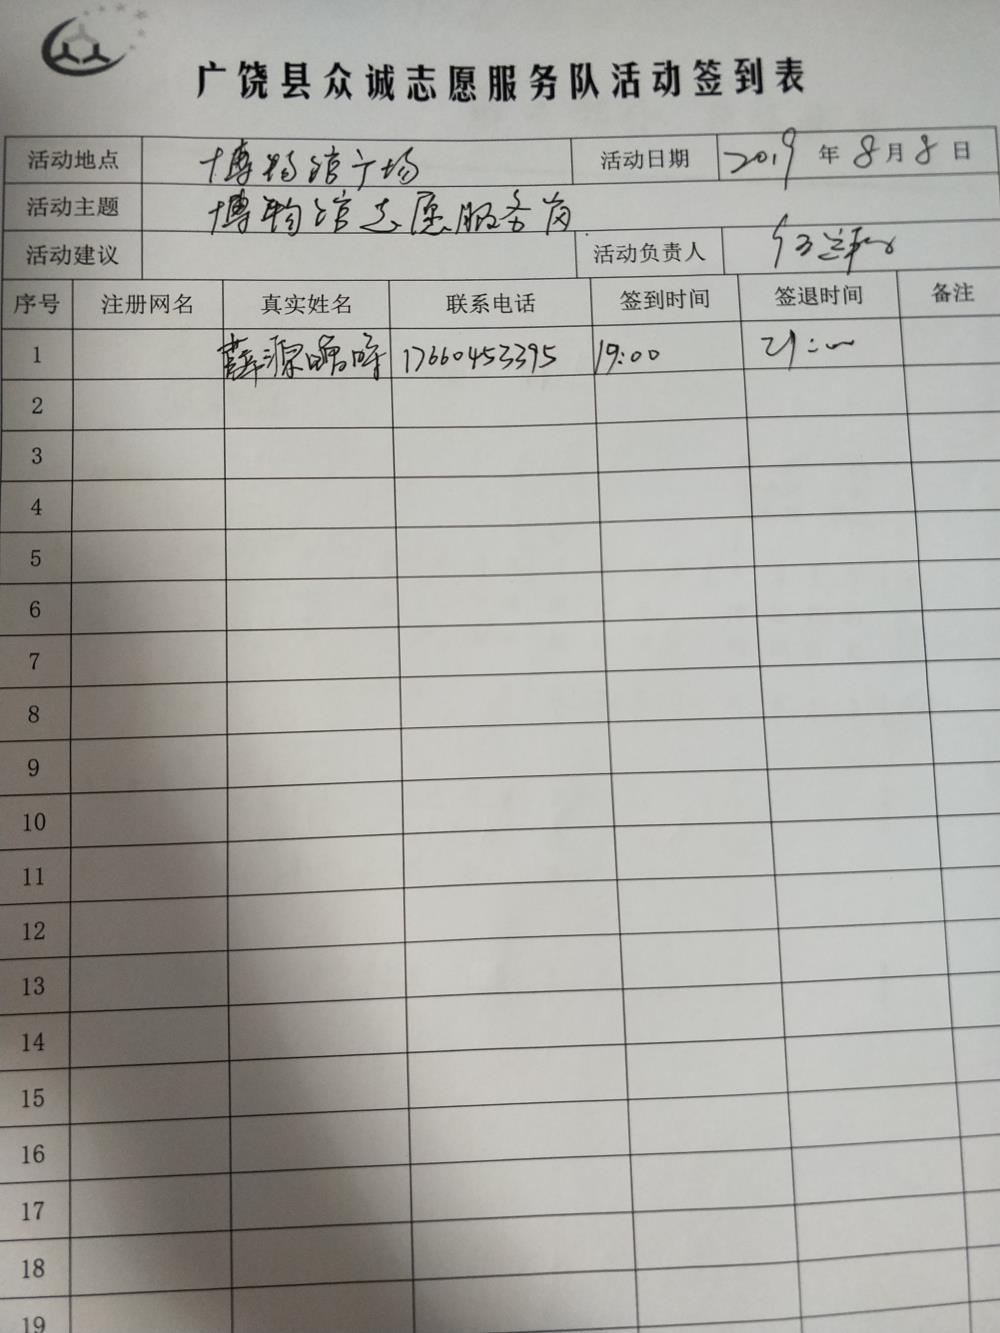 广饶县众诚志愿服务队活动签到表
活动地点 博物馆广场 活动日期 2019 年 8 月 8 日
活动主题 博物馆志愿服务岗
活动建议 活动负责人
序号 注册网名 真实姓名 联系电话 签到时间 签退时间 备注
1 薛源 17660453395 19:00 21:00
2
3
4
5
6
7
8
9
10
11
12
13
14
15
16
17
18
19